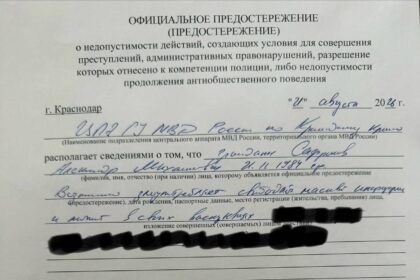 ОФИЦИАЛЬНОЕ ПРЕДОСТЕРЕЖЕНИЕ
(ПРЕДОСТЕРЕЖЕНИЕ)
о недопустимости действий, создающих условия для совершения
преступлений, административных правонарушений, разрешение
которых отнесено к компетенции полиции, либо недопустимости
продолжения антиобщественного поведения
г. Краснодар "21" августа 20
ЦПЭ ГУ МВД России по Краснодарскому Краю
(Наименование подразделения центрального аппарата МВД России, территориального органа МВД России)
располагает сведениями о том, что гражданин
Александр Михайлович 21.11.198
фамилия, имя, отчество (при наличии) лица, которому объявляется официальное предостережение
(предостережение), дата рождения, паспортные данные, место регистрации (жительства, пребывания) лица,
и в своих
изложение совершенных (совершаемых) лицом